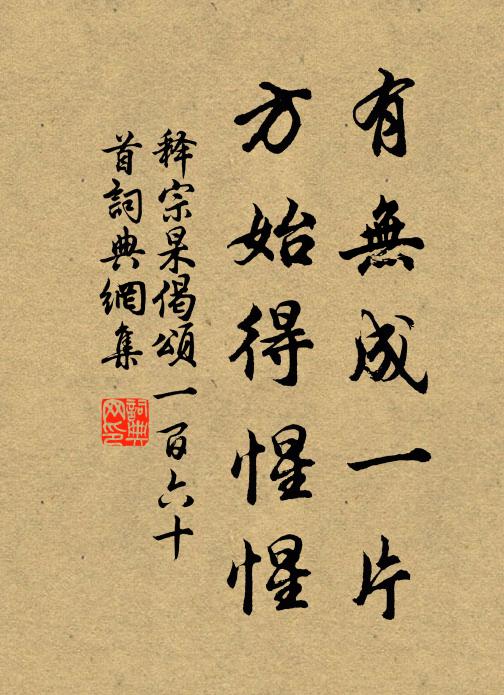 有無成一片
方始得惺惺
释宗杲偈頌一百六十
首詞典網集
詞典
网印